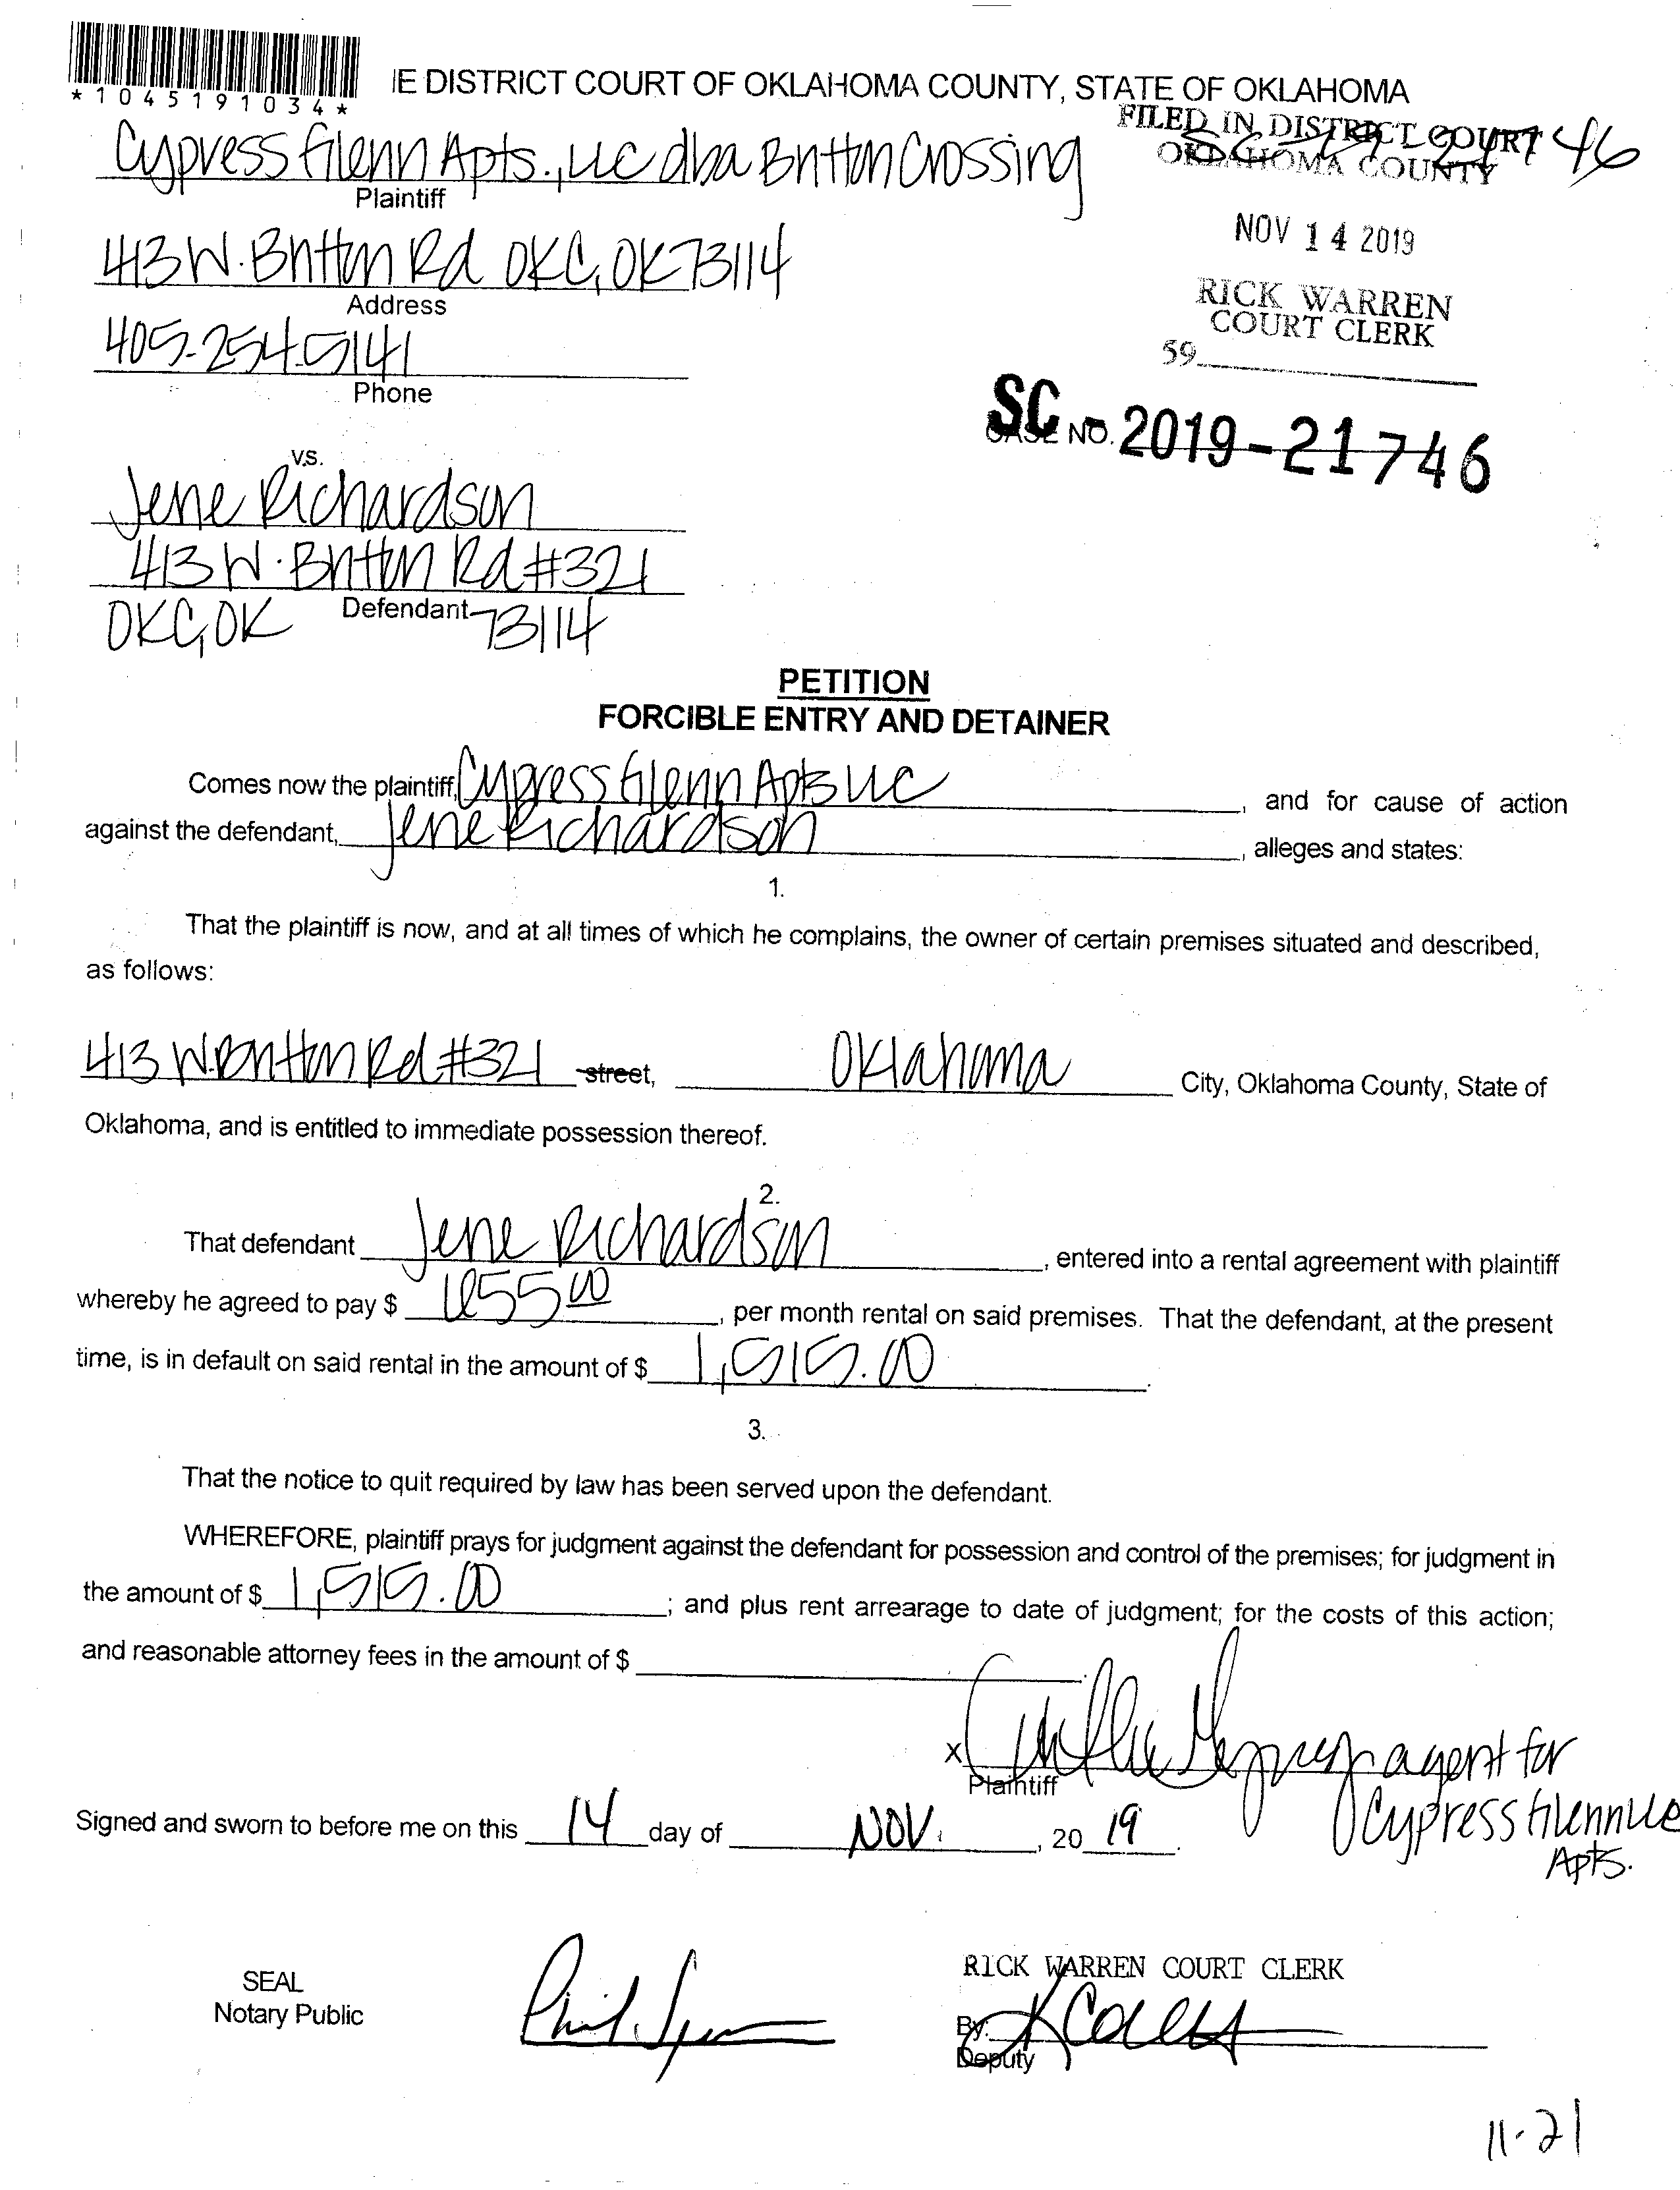 *1045191034*
IE DISTRICT COURT OF OKLAHOMA COUNTY, STATE OF OKLAHOMA
FILED IN DISTRICT COURT
OKLAHOMA COUNTY
SC 19 21746
Cypress Glenn Apts., LLC dba Britton Crossing
Plaintiff
NOV 14 2019
413 W. Britton Rd OKC, OK 73114
Address
RICK WARREN
COURT CLERK
405-254-5141
59
Phone
SC
CASE NO. 2019-21746
v.s.
Jene Richardson
413 W. Britton Rd #321
Defendant
OKC, OK 73114
PETITION
FORCIBLE ENTRY AND DETAINER
Comes now the plaintiff, Cypress Glenn Apts LLC, and for cause of action
against the defendant, Jene Richardson, alleges and states:
1.
That the plaintiff is now, and at all times of which he complains, the owner of certain premises situated and described,
as follows:
413 W. Britton Rd #321 street, Oklahoma City, Oklahoma County, State of
Oklahoma, and is entitled to immediate possession thereof.
2.
That defendant Jene Richardson, entered into a rental agreement with plaintiff
whereby he agreed to pay $ 655.00, per month rental on said premises. That the defendant, at the present
time, is in default on said rental in the amount of $ 1,515.00.
3.
That the notice to quit required by law has been served upon the defendant.
WHEREFORE, plaintiff prays for judgment against the defendant for possession and control of the premises; for judgment in
the amount of $ 1,515.00; and plus rent arrearage to date of judgment; for the costs of this action;
and reasonable attorney fees in the amount of $
x agent for
Plaintiff
Cypress Glenn LLC
Apts.
Signed and sworn to before me on this 14 day of NOV., 20 19.
SEAL
Notary Public
RICK WARREN COURT CLERK
By:
Deputy
11-21